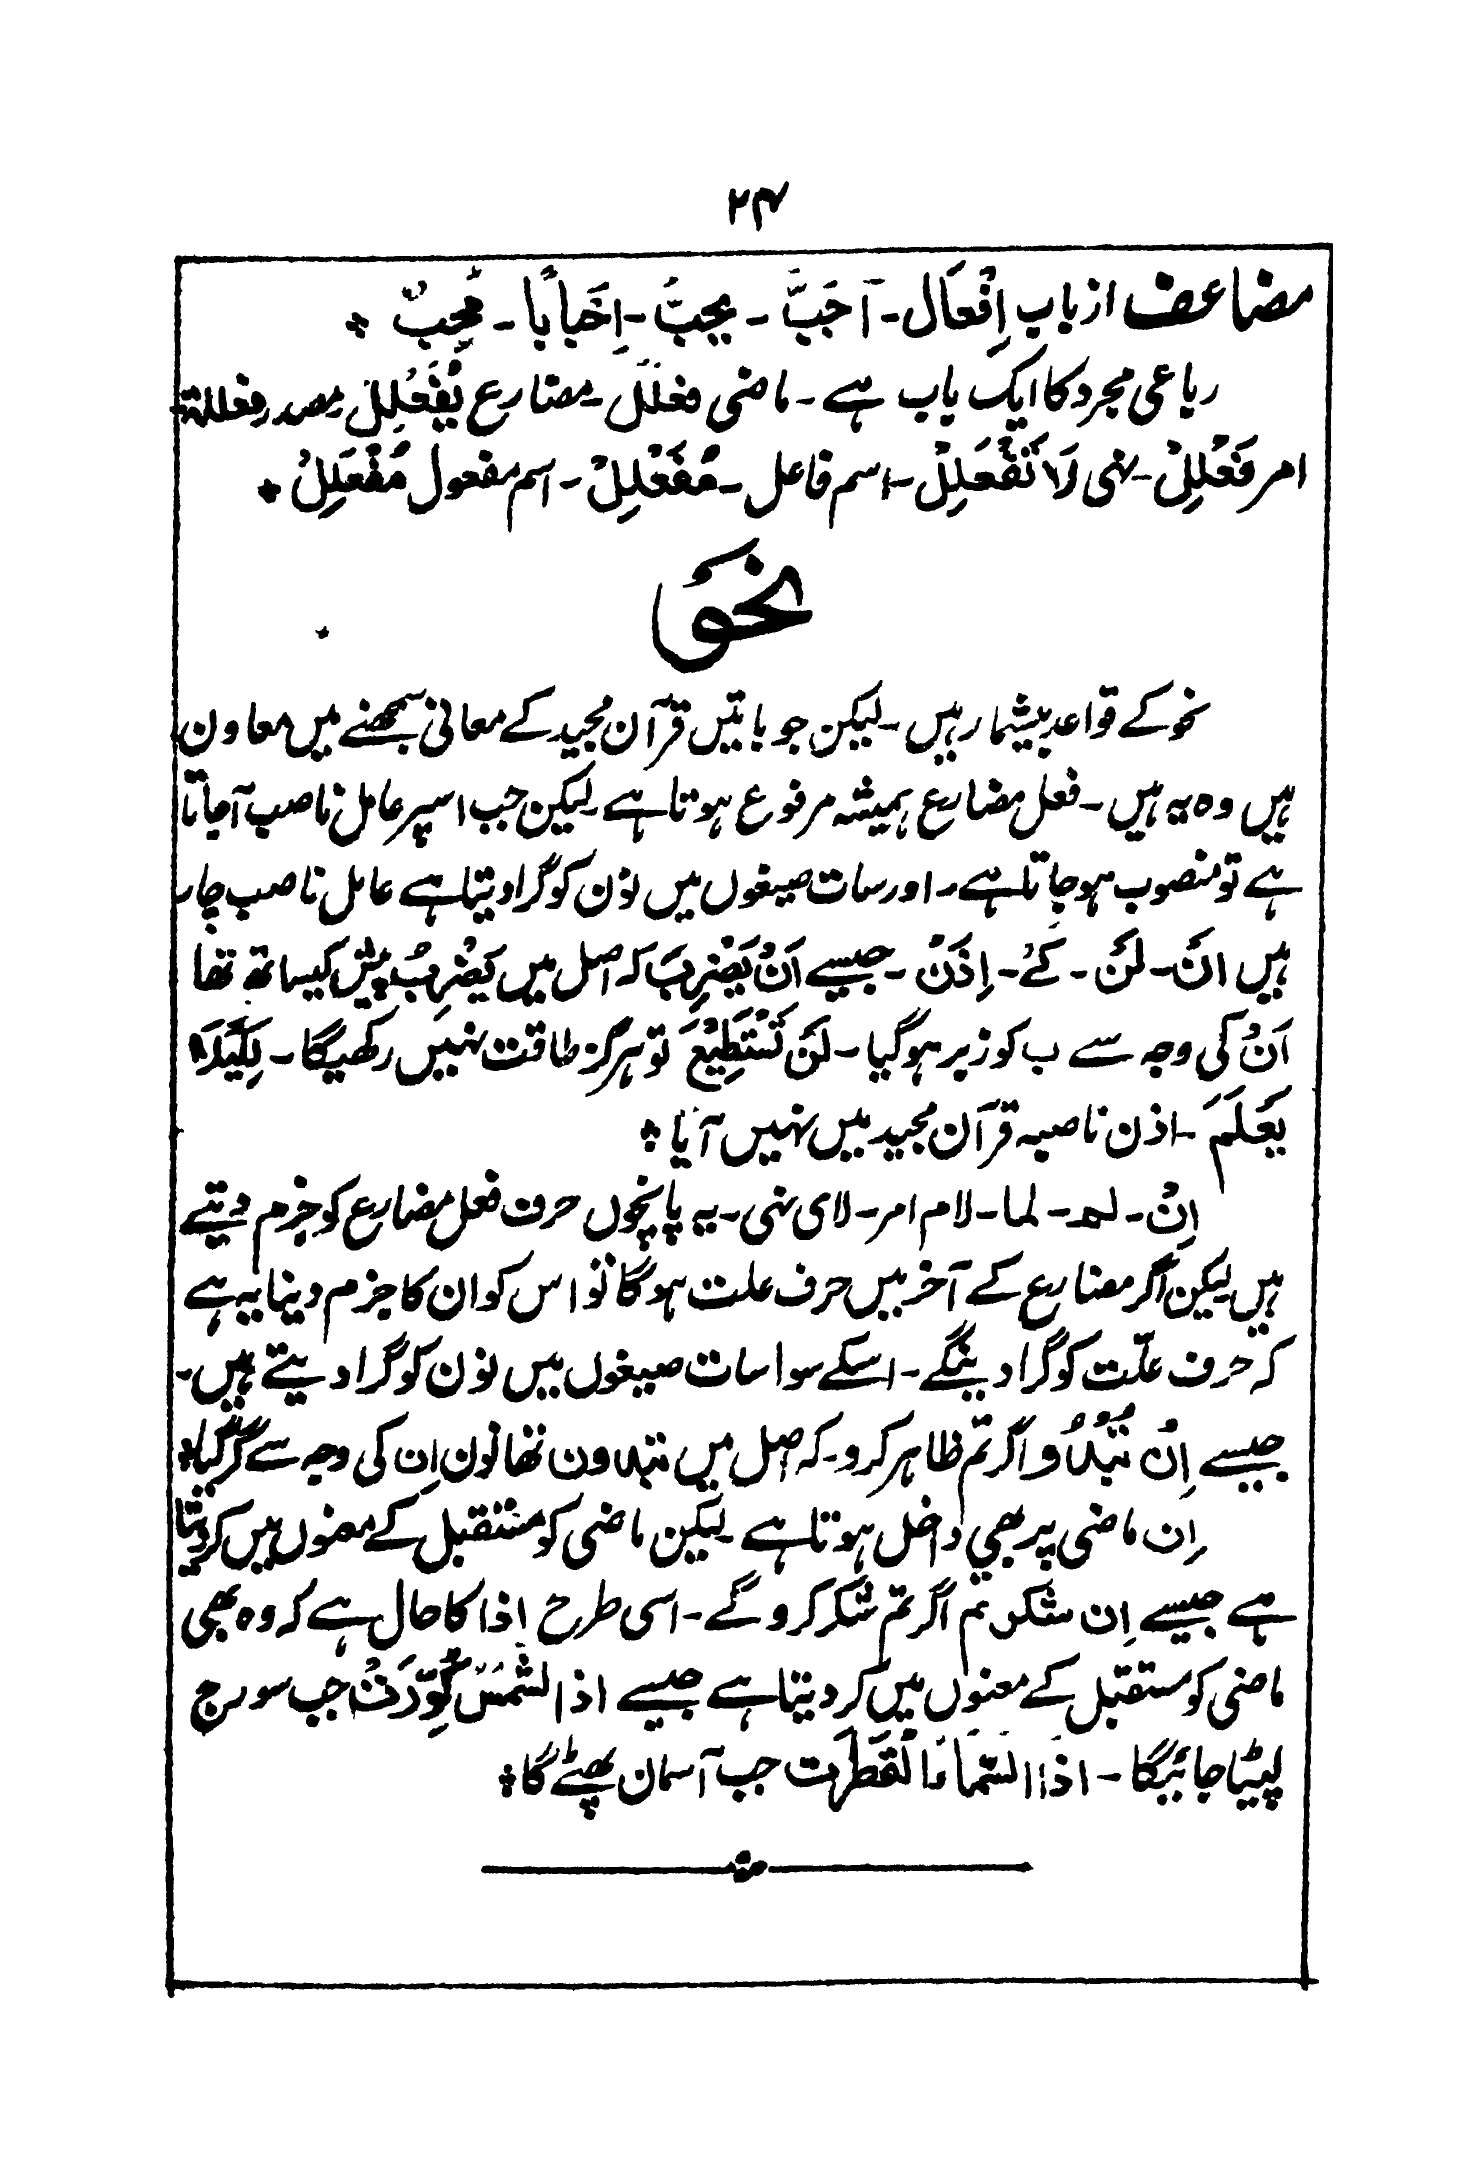 ۲۴
مضاعف از باب اِفْعَال۔ آحَبَّ ۔ یحبُّ ۔ اِحْبَابًا ۔ مُحِبٌ ٭
رباعی مجرد کا ایک باب ہے ۔ ماضی فَعْلَلَ ۔ مضارع یُفَعْلِلُ مصدر فعللة
امر فَعْلِلْ ۔ نہی لَا تُفَعْلِلْ ۔ اسم فاعل ۔ مُفَعْلِلٌ ۔ اسم مفعول مُفَعْلَلٌ ٭
نحو
نحو کے قواعد بیشمار ہیں ۔ لیکن جو باتیں قرآن مجید کے معانی سمجھنے میں معاون
ہیں وہ یہ ہیں ۔ فعل مضارع ہمیشہ مرفوع ہوتا ہے ۔ لیکن جب اسپر عامل ناصب آجاتا
ہے تو منصوب ہوجاتا ہے ۔ اور سات صیغوں میں نون کو گرا دیتا ہے عامل ناصب چار
ہیں اَنْ ۔ لَنْ ۔ کَے ۔ اِذَنْ ۔ جیسے اَنْ یَضْرِبَ کہ اصل میں یَضْرِبُ پیش کیساتھ تھا
اَنْ کی وجہ سے ب کو زبر ہوگیا ۔ لَنْ تَسْتَطِیْعَ تو ہرگز طاقت نہیں رکھیگا ۔ لِکَیْلَا
یَعْلَمَ ۔ اذن ناصبہ قرآن مجید میں نہیں آیا ٭
اِنْ ۔ لم ۔ لما ۔ لام امر ۔ لای نہی ۔ یہ پانچوں حرف فعل مضارع کو جزم دیتے
ہیں لیکن اگر مضارع کے آخر میں حرف علت ہوگا تو اس کو ان کا جزم دینا یہ ہے
کہ حرف علّت کو گرا دینگے ۔ اسکے سوا سات صیغوں میں نون کو گرا دیتے ہیں ۔
جیسے اِنْ تُبْدُوا اگر تم ظاہر کرو ۔ کہ اصل میں تبدون تھا نون اِن کی وجہ سے گر گیا ٭
اِن ماضی پر بھی داخل ہوتا ہے ۔ لیکن ماضی کو مستقبل کے معنوں میں کردیتا
ہے جیسے اِن شکرتم اگر تم شکر کروگے ۔ اسی طرح اِذا کا حال ہے کہ وہ بھی
ماضی کو مستقبل کے معنوں میں کر دیتا ہے جیسے اذا لشَّمْسُ کُوِّرَتْ جب سورج
لپیٹا جائیگا ۔ اذَا السَّمَاءُ انْفَطَرَت جب آسمان پھٹے گا ٭